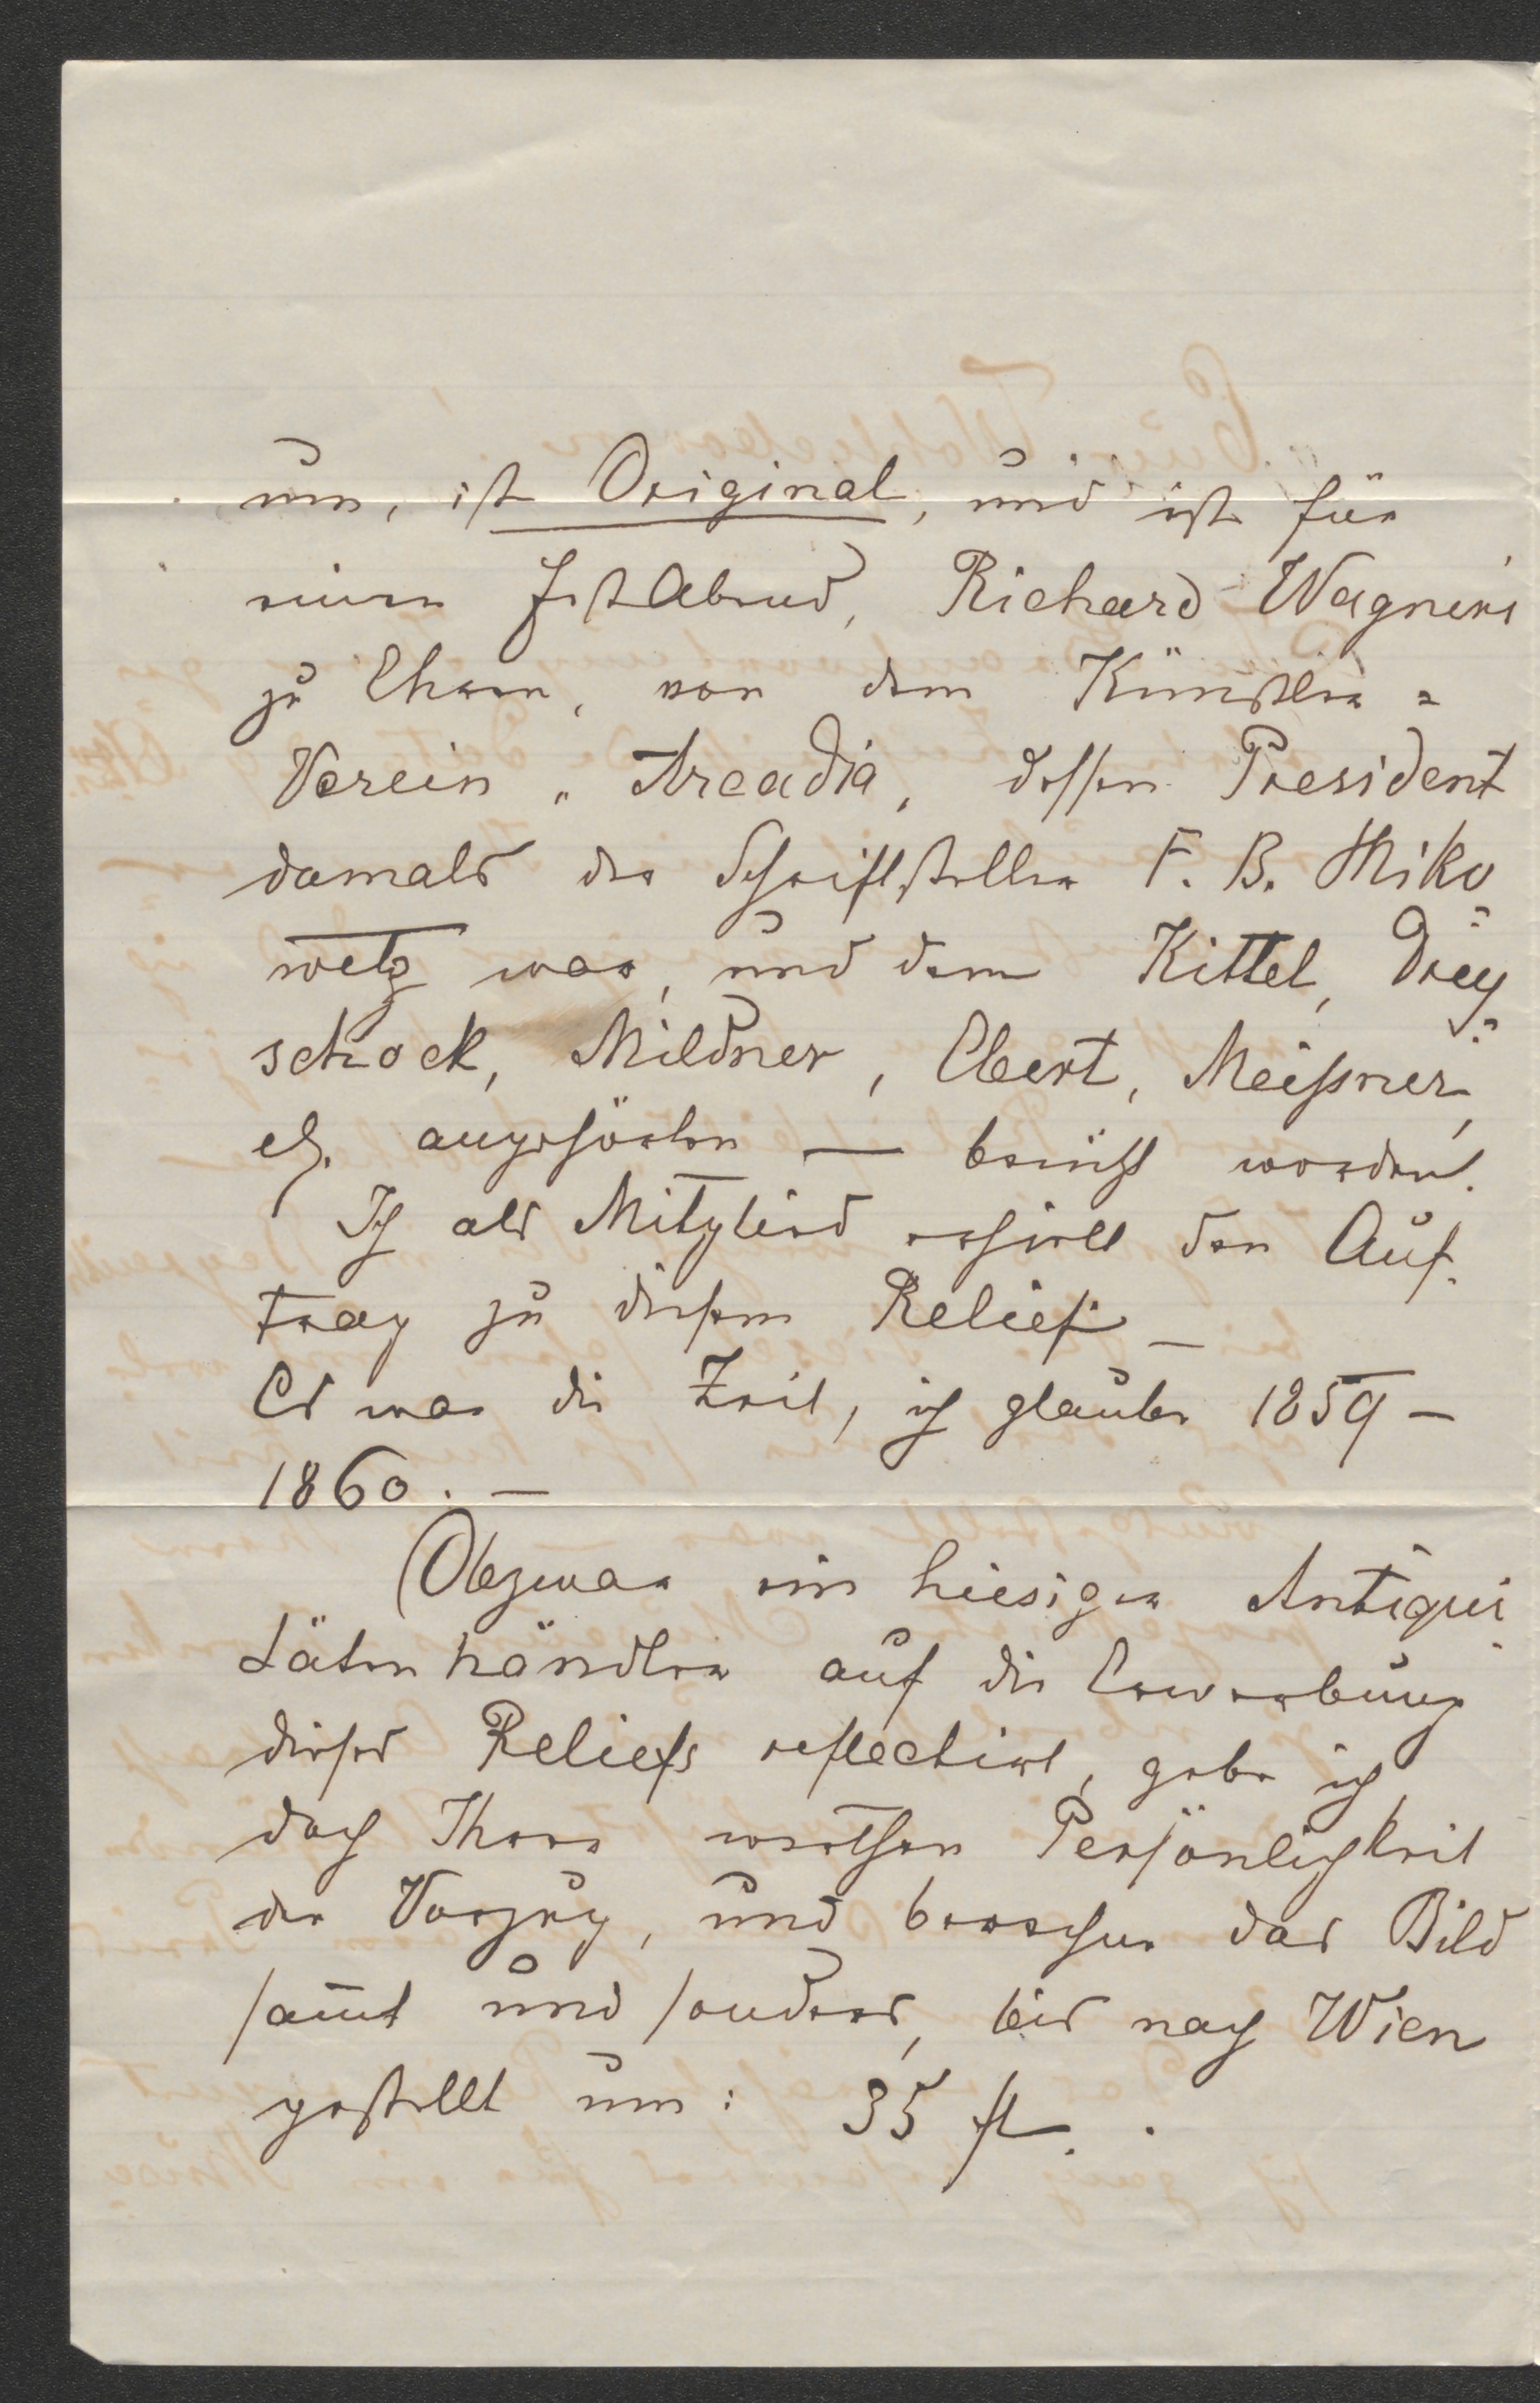 um, ist Original, und ist für
einen Festabend, Richard Wagners
zu Ehren, von dem Künstler=
Verein „Arcadia, dessen President
damals der Schriftsteller F. B. Miko
wetz war, und dem Kittel, Drey
schock, Mildner, Ebert, Meißner,
etz. angehörten — benützt worden.
Ich als Mitglied erhielt den Auf-
trag zu diesem Relief —
Es war die Zeit, ich glaube 1859 —
1860. —
Obzwar ein hiesiger Antiqui
tätenhändler auf die Erwerbung
dieses Reliefs reflectirt, gebe ich
doch Ihrer werthen Persönlichkeit
den Vorzug, und berechne das Bild
samt und sonders, bis nach Wien
gestellt um: 35 fl.